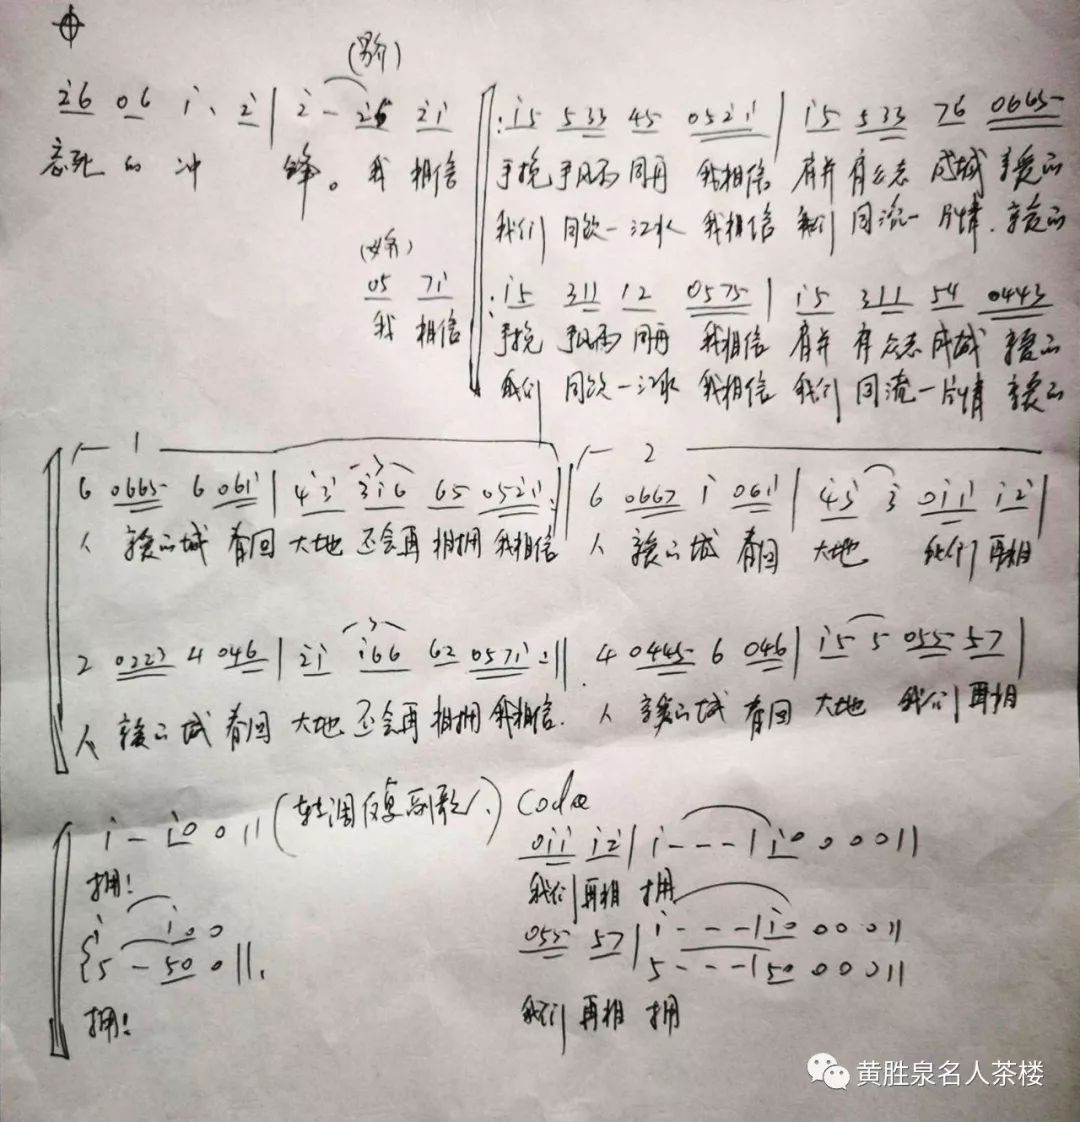 (男介)
2̇6 06 1̇· 2̇ | 2̇ - 2̇6 2̇1̇
忘死的冲 锋。我 相信
‖: 1̇5 533 45 052̇1̇ | 1̇5 533 76 0665
手挽手风雨同舟 我相信 肩并肩众志成城 亲爱的
我们同饮一江水 我相信 我们同流一片情. 亲爱的
05 71̇
我 相信
‖: 1̇5 311 12 0575 | 1̇5 311 54 0443
手挽手风雨同舟 我相信 肩并肩众志成城 亲爱的
我们同饮一江水 我相信 我们同流一片情 亲爱的
1
6 0665 6 061̇ | 4̇3̇ 3̇1̇6 65 052̇1̇ :‖
人 亲爱的城 春回大地 还会再相拥 我相信
2
6 0667 1̇ 061̇ | 4̇3̇ 3̇ 01̇1̇ 1̇2̇ |
人 亲爱的城 春回 大地 我们再相
2 0223 4 046 | 2̇1̇ 1̇66 62 0571̇ :‖
人 亲爱的城 春回 大地 还会再相拥 我相信.
4 0445 6 046 | 1̇5 5 055 57 |
人 亲爱的城 春回 大地 我们再相
1̇ - 1̇0 0 ‖ (转调反复副歌、)
拥!
Coda
01̇1̇ 1̇2̇ | 1̇ - - - | 1̇0 0 0 0 ‖
我们再相 拥
1̇ 1̇0 0
5 - 50 0 ‖.
拥!
055 57 | 1̇ - - - | 1̇0 0 0 0 ‖
5 - - - | 50 0 0 0 ‖
我们再相 拥
黄胜泉名人茶楼